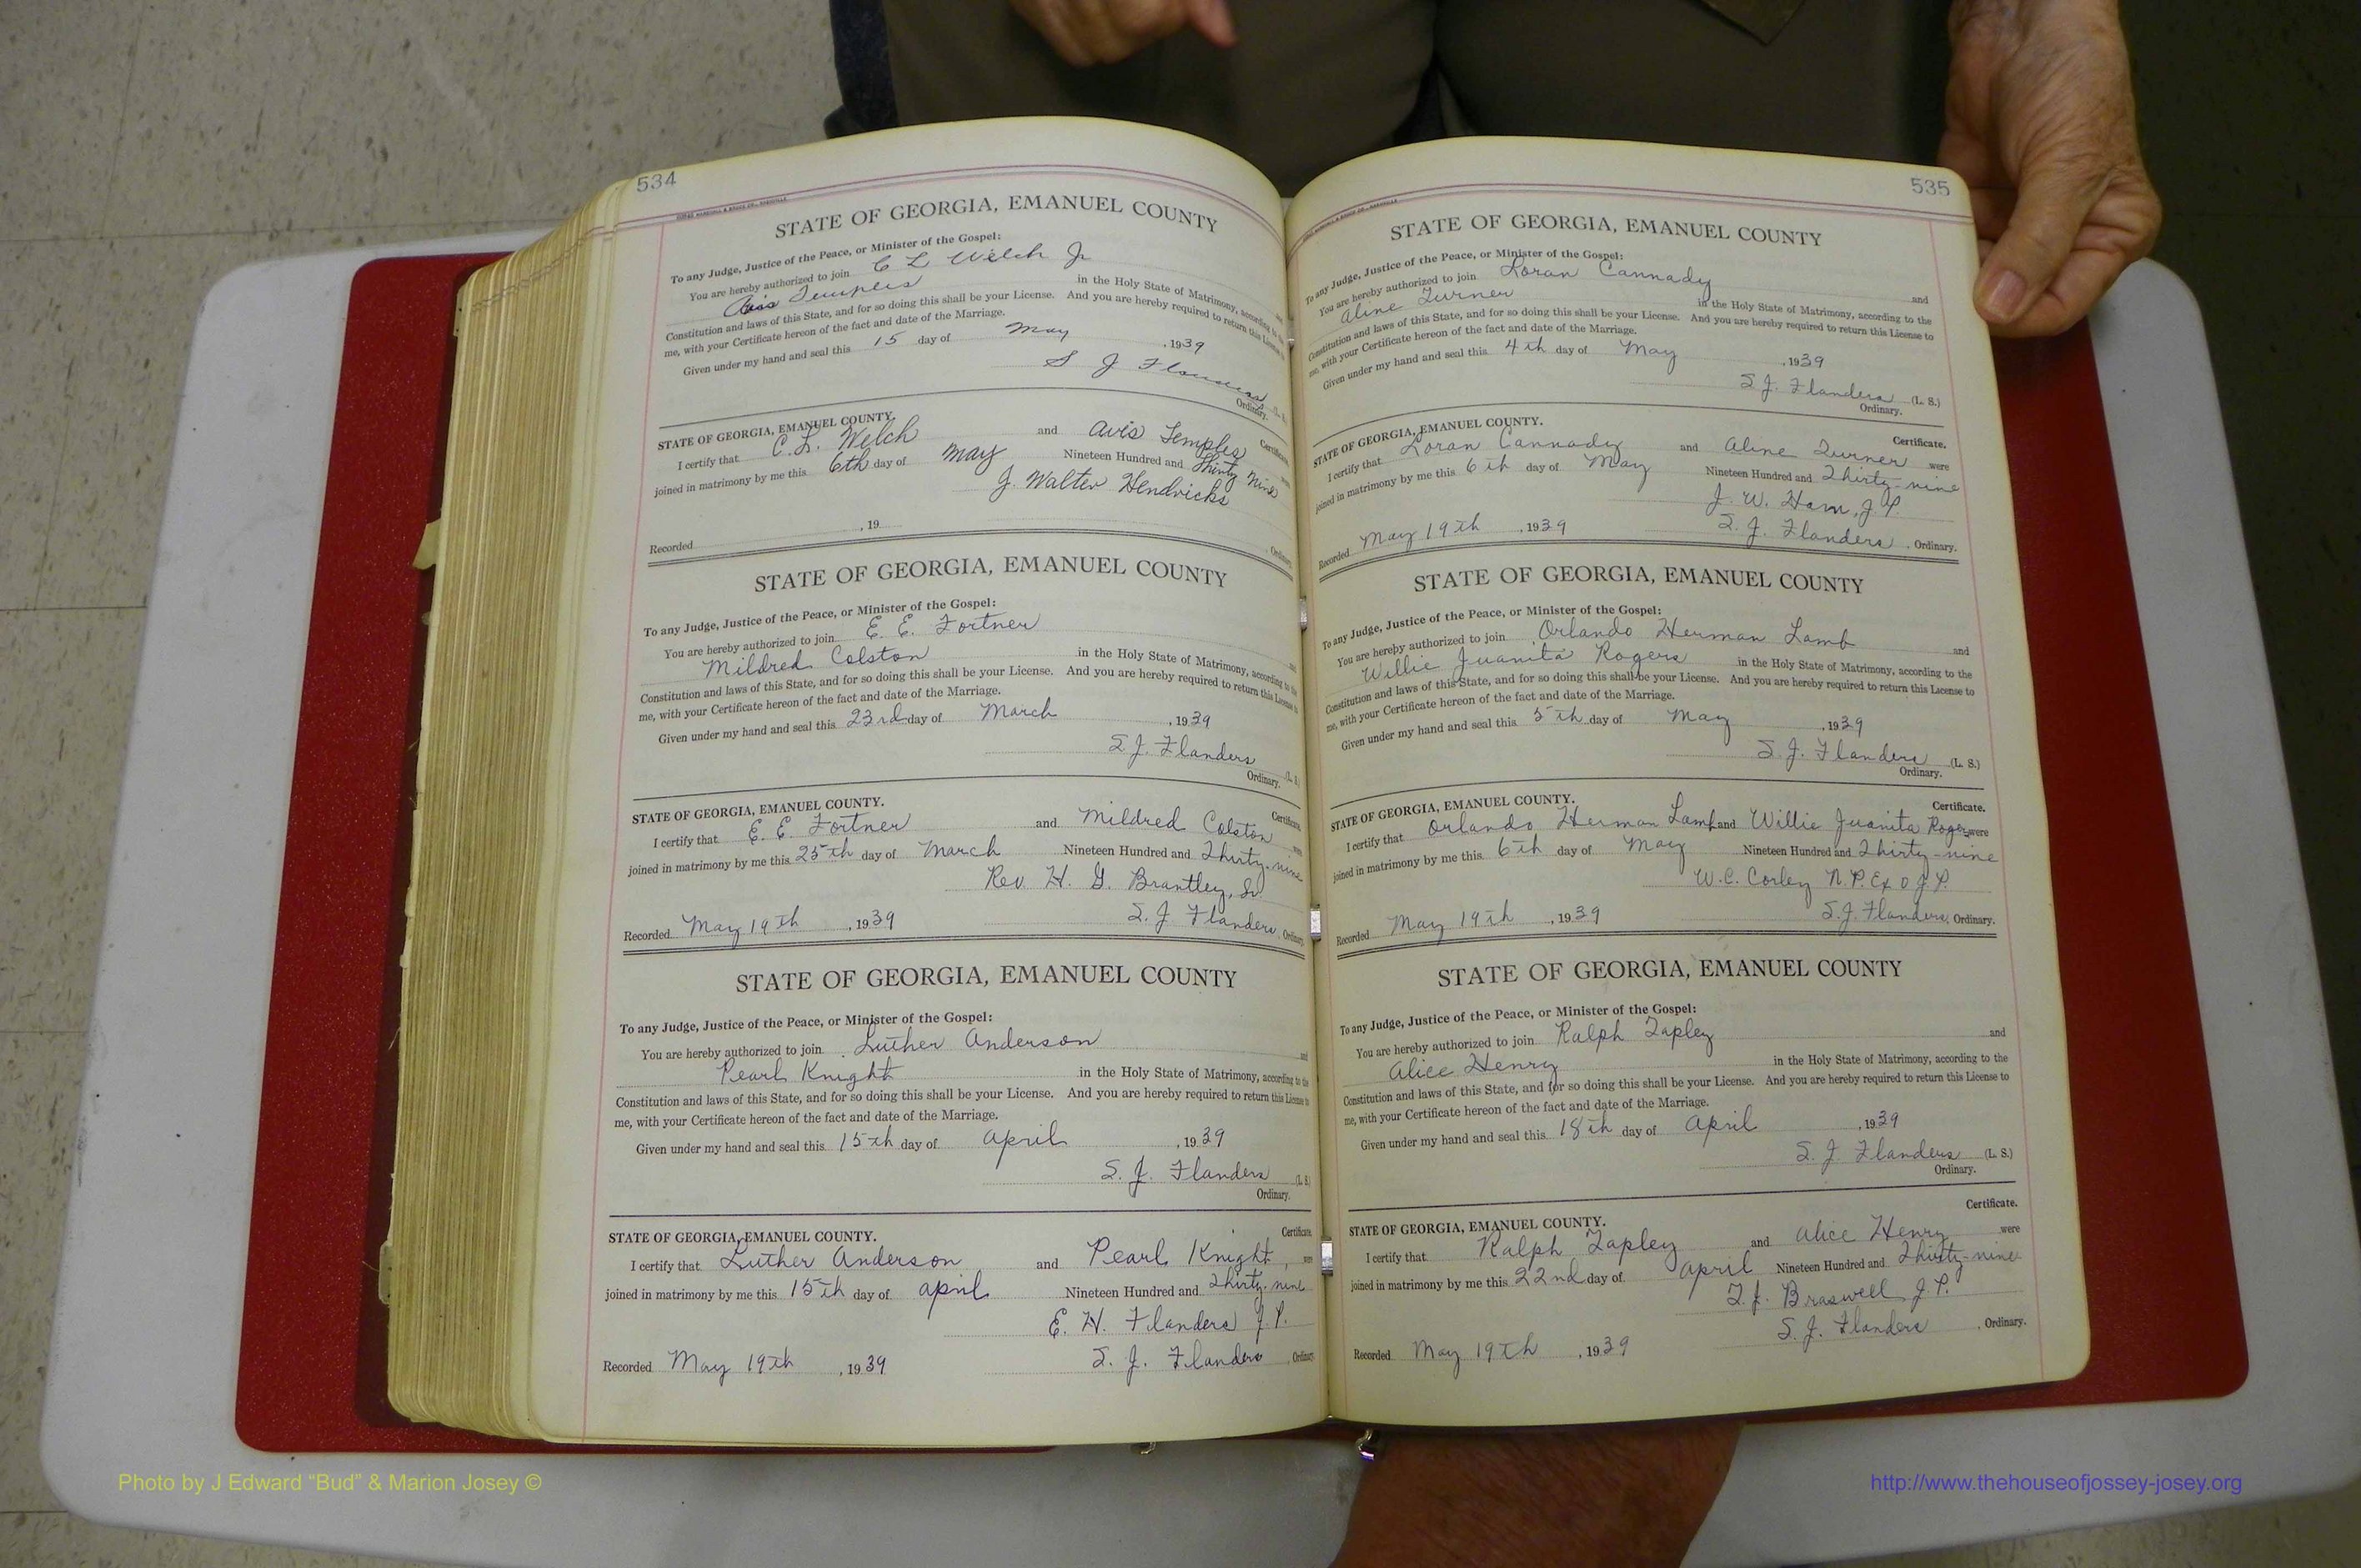 534
STATE OF GEORGIA, EMANUEL COUNTY
To any Judge, Justice of the Peace, or Minister of the Gospel:
You are hereby authorized to join C L Welch Jr
Avis Temples in the Holy State of Matrimony, according to the
Constitution and laws of this State, and for so doing this shall be your License. And you are hereby required to return this License
me, with your Certificate hereon of the fact and date of the Marriage.
Given under my hand and seal this 15 day of May, 1939
S J Flanders (L. S.
Ordinary.
STATE OF GEORGIA, EMANUEL COUNTY. Certificate.
I certify that C. L. Welch and Avis Temples
joined in matrimony by me this 6th day of May Nineteen Hundred and Thirty Nine
J. Walter Hendricks
Recorded , 19 Ordinary.
STATE OF GEORGIA, EMANUEL COUNTY
To any Judge, Justice of the Peace, or Minister of the Gospel:
You are hereby authorized to join E. E. Fortner
Mildred Colston in the Holy State of Matrimony, according to the
Constitution and laws of this State, and for so doing this shall be your License. And you are hereby required to return this License
me, with your Certificate hereon of the fact and date of the Marriage.
Given under my hand and seal this 23rd day of March, 1939
S. J. Flanders (L. S.
Ordinary.
STATE OF GEORGIA, EMANUEL COUNTY. Certificate.
I certify that E. E. Fortner and Mildred Colston
joined in matrimony by me this 25th day of March Nineteen Hundred and Thirty-nine
Rev. H. G. Brantley, Sr.
Recorded May 19th, 1939 S. J. Flanders, Ordinary
STATE OF GEORGIA, EMANUEL COUNTY
To any Judge, Justice of the Peace, or Minister of the Gospel:
You are hereby authorized to join Luther Anderson and
Pearl Knight in the Holy State of Matrimony, according to the
Constitution and laws of this State, and for so doing this shall be your License. And you are hereby required to return this License
me, with your Certificate hereon of the fact and date of the Marriage.
Given under my hand and seal this 15th day of April, 1939
S. J. Flanders (L. S.)
Ordinary.
Certificate.
STATE OF GEORGIA, EMANUEL COUNTY.
I certify that Luther Anderson and Pearl Knight, were
joined in matrimony by me this 15th day of April Nineteen Hundred and Thirty-nine
E. H. Flanders J. P.
Recorded May 19th, 1939 S. J. Flanders, Ordinary
535
STATE OF GEORGIA, EMANUEL COUNTY
To any Judge, Justice of the Peace, or Minister of the Gospel:
You are hereby authorized to join Loran Cannady and
Aline Turner in the Holy State of Matrimony, according to the
Constitution and laws of this State, and for so doing this shall be your License. And you are hereby required to return this License to
me, with your Certificate hereon of the fact and date of the Marriage.
Given under my hand and seal this 4th day of May, 1939
S. J. Flanders (L. S.)
Ordinary.
STATE OF GEORGIA, EMANUEL COUNTY. Certificate.
I certify that Loran Cannady and Aline Turner were
joined in matrimony by me this 6th day of May Nineteen Hundred and Thirty-nine
J. W. Ham, J. P.
Recorded May 19th, 1939 S. J. Flanders, Ordinary.
STATE OF GEORGIA, EMANUEL COUNTY
To any Judge, Justice of the Peace, or Minister of the Gospel:
You are hereby authorized to join Orlando Herman Lamb and
Willie Juanita Rogers in the Holy State of Matrimony, according to the
Constitution and laws of this State, and for so doing this shall be your License. And you are hereby required to return this License to
me, with your Certificate hereon of the fact and date of the Marriage.
Given under my hand and seal this 5th day of May, 1939
S. J. Flanders (L. S.)
Ordinary.
STATE OF GEORGIA, EMANUEL COUNTY. Certificate.
I certify that Orlando Herman Lamb and Willie Juanita Rogers were
joined in matrimony by me this 6th day of May Nineteen Hundred and Thirty-nine
W. C. Corley N. P. Ex O J. P.
Recorded May 19th, 1939 S. J. Flanders, Ordinary.
STATE OF GEORGIA, EMANUEL COUNTY
To any Judge, Justice of the Peace, or Minister of the Gospel:
You are hereby authorized to join Ralph Tapley and
Alice Henry in the Holy State of Matrimony, according to the
Constitution and laws of this State, and for so doing this shall be your License. And you are hereby required to return this License to
me, with your Certificate hereon of the fact and date of the Marriage.
Given under my hand and seal this 18th day of April, 1939
S. J. Flanders (L. S.)
Ordinary.
Certificate.
STATE OF GEORGIA, EMANUEL COUNTY.
I certify that Ralph Tapley and Alice Henry were
joined in matrimony by me this 22nd day of April Nineteen Hundred and Thirty-nine
T. J. Braswell J. P.
S. J. Flanders, Ordinary.
Recorded May 19th, 1939
Photo by J Edward “Bud” & Marion Josey ©
http://www.thehouseofjossey-josey.org